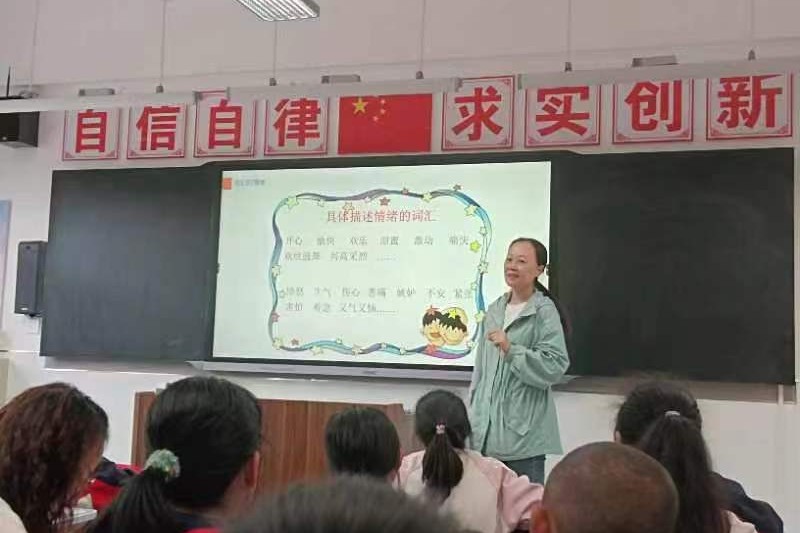 自信自律 求实创新
具体描述情绪的词汇
开心 愉快 欢乐 激动
欢欣鼓舞 兴高采烈 ……
生气 伤心 悲痛 嫉妒 不安 紧张
害怕 着急 又气又恼……